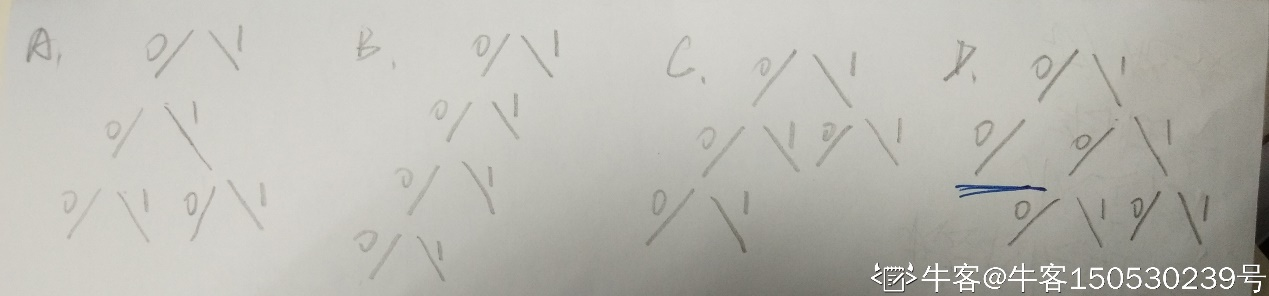 A. 0 1 B. 0 1 C. 0 1 D. 0 1
0 1 0 1 0 1 0 1 0 0 1
0 1 0 1 0 1 0 1 0 1 0 1
0 1
牛客@牛客150530239号